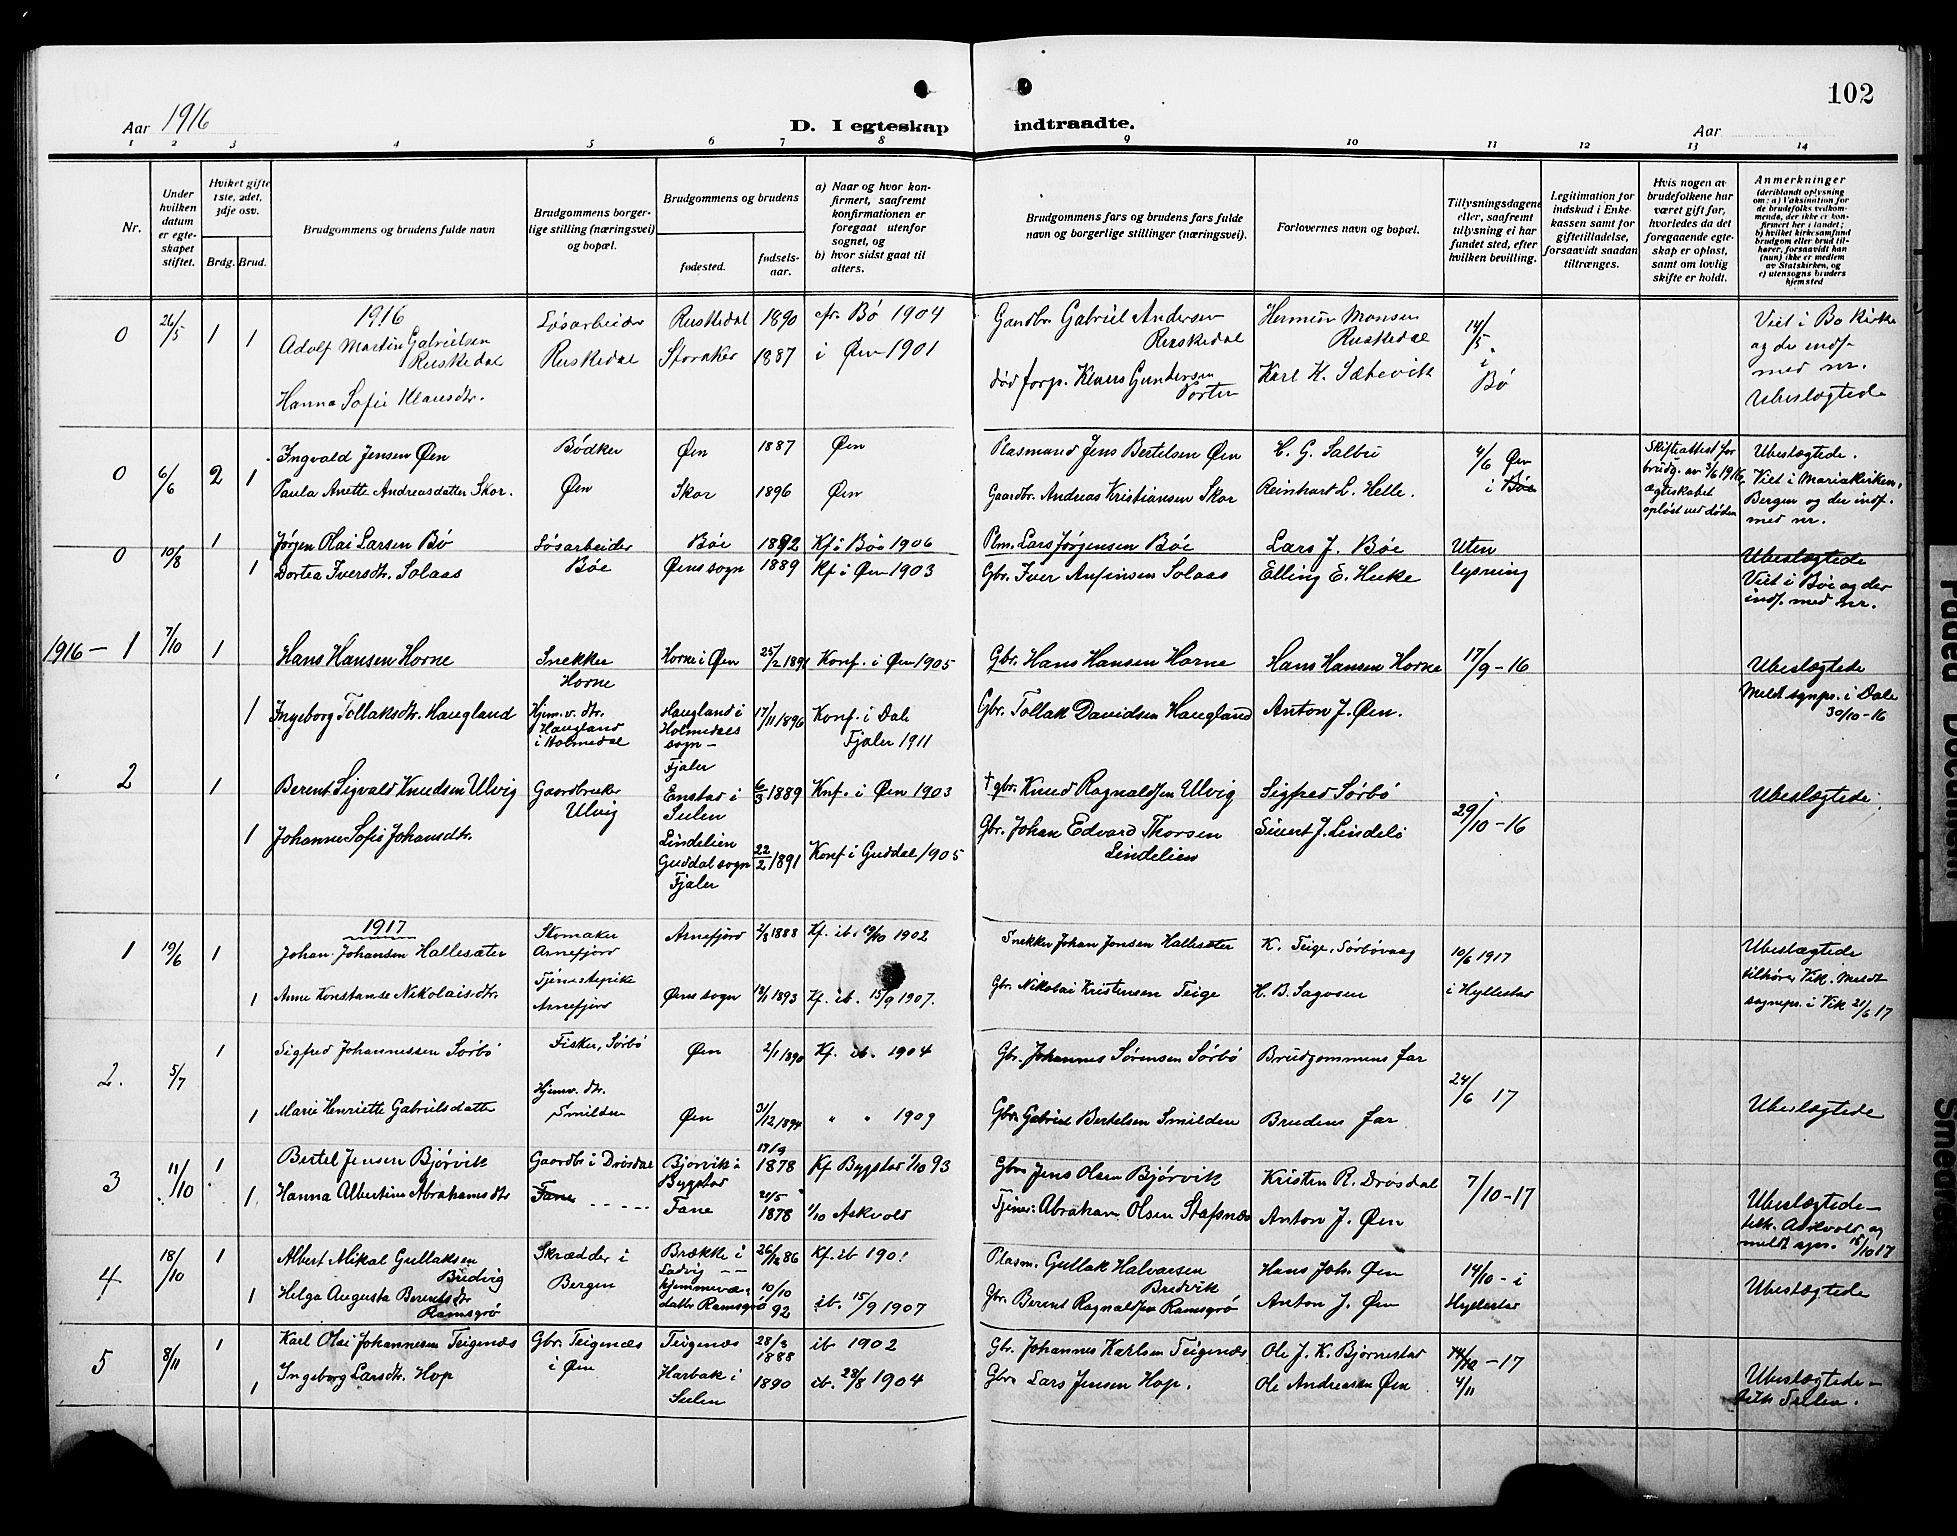 102
Aar 1916
D. I egteskap indtraadte.
Aar
1 2 3 4 5 6 7 8 9 10 11 12 13 14
Nr.
Under hvilken datum er egteskapet stiftet.
Hvilket gifte 1ste, adet, 3dje osv.
Brdg. Brud.
Brudgommens og brudens fulde navn
Brudgommens borgerlige stilling (næringsvei) og bopæl.
Brudgommens og brudens
fødested.
fødselsaar.
a) Naar og hvor konfirmert, saafremt konfirmationen er foregaat utenfor sognet, og
b) hvor sidst gaat til alters.
Brudgommens fars og brudens fars fulde navn og borgerlige stillinger (næringsvei).
Forlovernes navn og bopæl.
Tillysningsdagene eller, saafremt tillysning ei har fundet sted, efter hvilken bevilling.
Legitimation for indskud i Enkekassen samt for giftetilladelse, forsaavidt saadan tiltrænges.
Hvis nogen av brudefolkene har været gift før, hvorledes da det foregaaende egteskap er opløst, samt om lovlig skifte er holdt.
Anmerkninger (deriblandt oplysning om: a) Vaksination for de brudefolks vedkommende, der ikke er konfirmert her i landet; b) hvilket kirkesamfund brudgom eller brud tilhører, forsaavidt han (hun) ikke er medlem av Statskirken, og c) utensogns bruders hjemsted
1916
0 26/5 1 1 Adolf Martin Gabrielsen Ruskedal Løsarbeider Ruskedal Ruskedal 1890 Bø 1904 Gaardbr. Gabriel Andersen Ruskedal Herman Monsen Ruskedal 14/5 i Bø Viet i Bø kirke og der indf. med nr.
Hanna Sofie Klausdtr. Storaker 1887 i Øen 1901 død forp. Klaus Gundersen Porten Karl K. Sætevik Ubeslægtede
0 6/6 2 1 Ingvald Jensen Øen Bødker Øen 1887 Øen Plasmand Jens Bertelsen Øen C. G. Salbu 4/6 Øen Skifteattest for brudg. av 3/6 1916, ægteskabet opløst ved døden Ubeslægtede.
Paula Anette Andreasdatter Skor. Øen Skor 1896 Øen Gaardbr. Andreas Kristiansen Skor Reinhart L. Helle. i Bøe Viet i Mariakirken, Bergen og der indf. med nr.
0 10/8 1 Jørgen Olai Larsen Bø Løsarbeider Bøe Bøe 1892 Kf i Bøe 1906 Plm. Lars Jørgensen Bøe Lars J. Bøe Uten lysning Ubeslægtede
1 Dortea Iversdtr. Solaas Øens sogn 1889 Kf i Øen 1903 Gbr. Iver Anfinsen Solaas Elling E. Heike Viet i Bøe og der indf. med nr.
1916 – 1 7/10 1 Hans Hansen Horne Snekker Horne Horne i Øen 25/2 1891 Konf. i Øen 1905 Gbr. Hans Hansen Horne Hans Hansen Horne 17/9 – 16 Ubeslægtede
1 Ingeborg Tollaksdtr. Haugland Hjem.v. dtr. Haugland i Holmedal Haugland i Holmedals sogn – Fjaler 17/11 1896 Konf. i Dale Fjaler 1911 Gbr. Tollak Davidsen Haugland Anton J. Øen. Meldt sognpr. i Dale 30/10 – 16
2 1 Berent Sigvald Knudsen Ulvig Gaardbruker Ulvig Enstad i Sulen 6/3 1889 Knf. i Øen 1903 † gbr. Knud Ragnaldsen Ulvig Sigfred Sørbø 29/10 – 16 Ubeslægtede
1 Johanne Sofie Johansdtr. Lindelien Guddal sogn Fjaler 22/2 1891 Konf i Guddal 1905 Gbr. Johan Edvard Thorsen Lindelien Sivert J. Lindelö
1917
1 19/6 1 Johan Johansen Hallesæter Skomaker Arnefjord Arnefjord 2/8 1888 Kf. ib. 19/10 1902 Snekker Johan Jonsen Hallesæter K. Teige, Sørbøvaag 10/6 1917 Ubeslægtede
1 Anne Konstanse Nikolaisdtr. Tjenestepike Arnefjord Øens sogn 18/1 1893 Kf. ib. 15/9 1907. Gbr. Nikolai Kristensen Teige H. B. Sagosen i Hyllestad tilhører Vik. Meldt sognpr. i Vik 21/6 17
2. 5/7 1 Sigfred Johannessen Sørbø Fisker, Sørbø Øen 2/1 1890 Kf. ib. 1904 Gbr. Johannes Sørensen Sørbø Brudgommens far 24/6 17
1 Marie Henriette Gabrielsdatter Hjemv. dtr. Smilden Øen 31/12 1894 " " 1909 Gbr. Gabriel Bertelsen Smilden Brudens far Ubeslægtede
3 11/10 1 Bertel Jensen Bjørvik Gaardbr i Drøsdal Bjørvik i Bygstad 17/9 1878 Kf Bygstad 1/10 93 Gbr. Jens Olsen Bjørvik Kristen R. Drøsdal 7/10 – 17
1 Hanna Albertine Abrahamsdtr Fane Fane 21/5 1878 1/10 Askvold Tjener Abraham Olsen Stafsnes Anton J. Øen Ubeslægtede – tilh. Askvold og meldt spr. 15/10 17
4 18/10 1 Albert Mikal Gullaksen Bredvig Skrædder i Bergen Brække i Ladvig – – 26/12 86 Kf. ib 190 Plasm. Gullak Halvorsen Bredvik Hans Joh. Øen 14/10 – i Hyllestad Ubeslægtede
1 Helga Augusta Berentsdtr Ramsgrø hjemmeværdatter Ramsgrø 10/10 92 ib. 15/9 1907 Gbr. Berent Ragnaldsen Ramsgrø Anton J. Øen
5 8/11 1 Karl Olai Johannesen Teigenæs Gbr. Teigenæs i Øen Teigenæs 28/3 1888 ib 1902 Gbr. Johannes Karlsen Teigenæs Ole J. K. Bjørnestad 14/10 – 17
1 Ingeborg Larsdtr. Hop Harbak i Sulen 1890 ib. 28/8 1904 Gbr. Lars Jensen Hop. Ole Andreasen Øen 4/11 Ubeslægtede – tilh Sulen.
Faded Document
Smeared